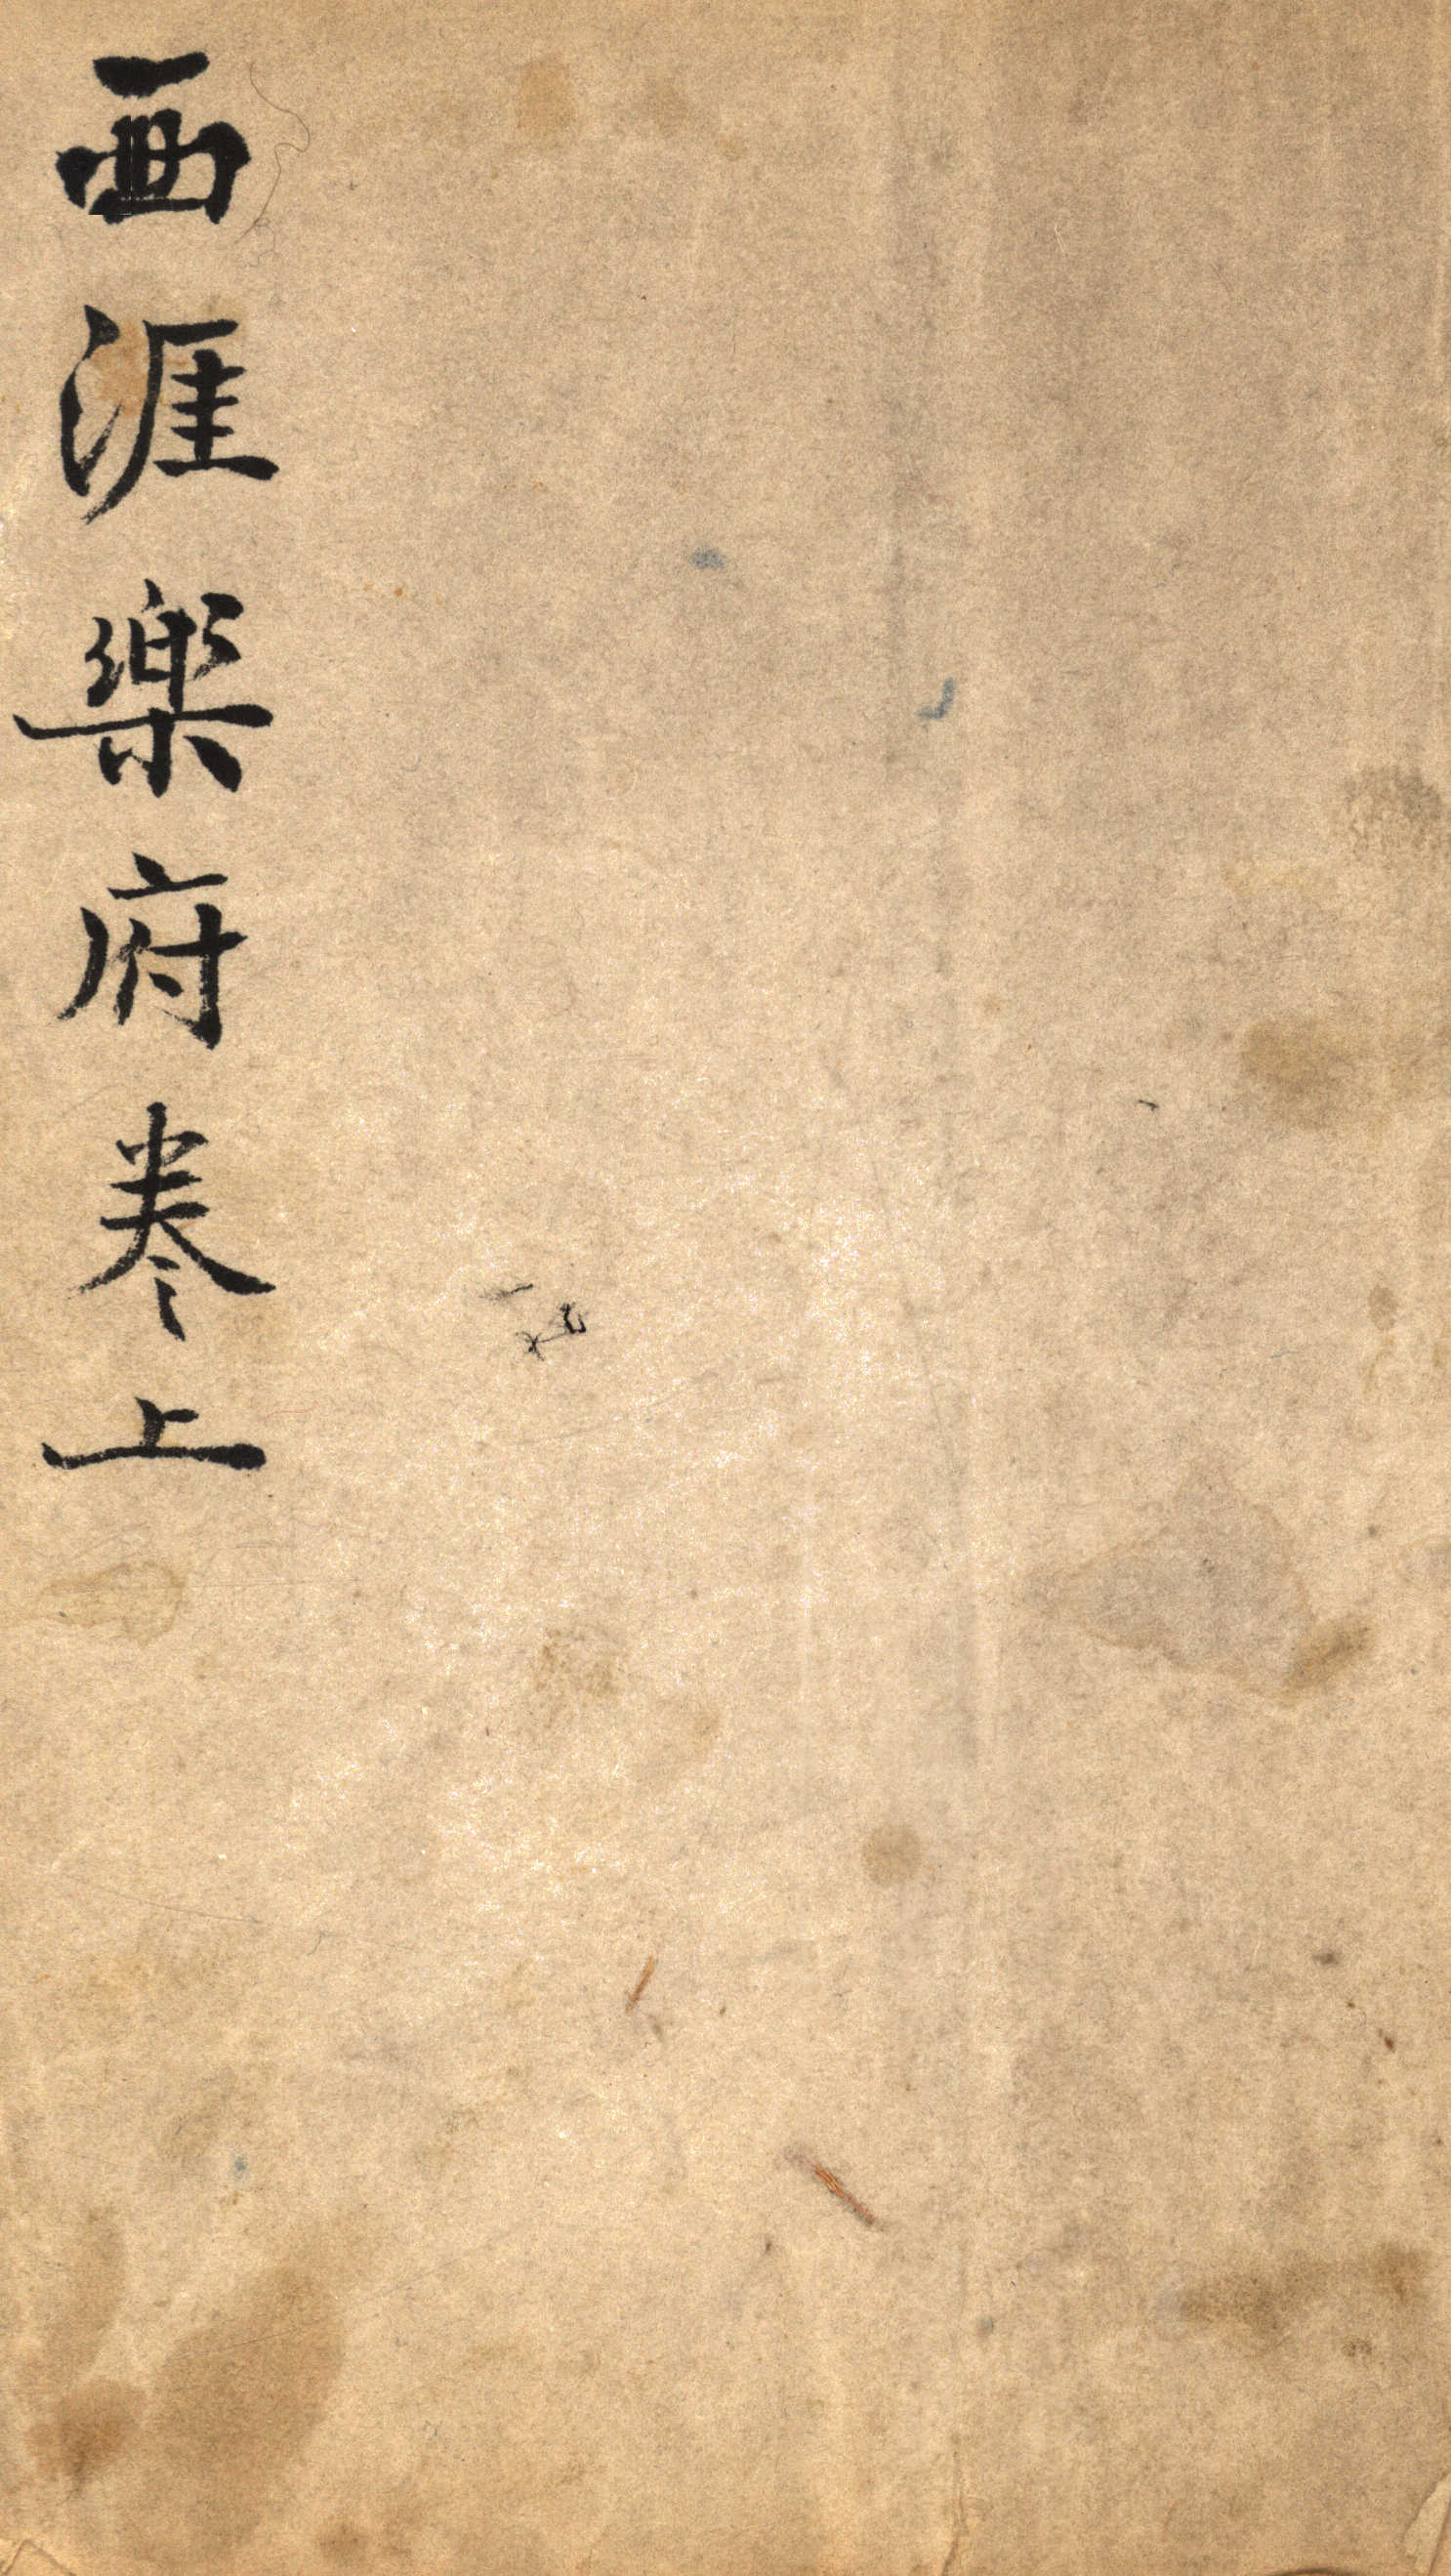 西涯樂府卷上